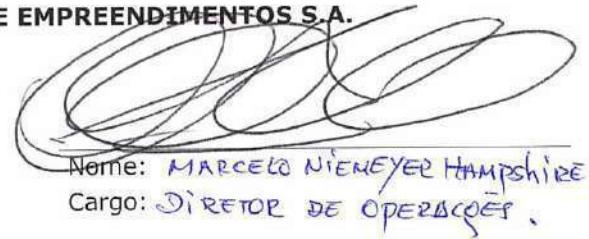 E EMPREENDIMENTOS S.A.
Nome: MARCELO NIEMEYER HAMPSHIRE
Cargo: DIRETOR DE OPERAÇÕES.